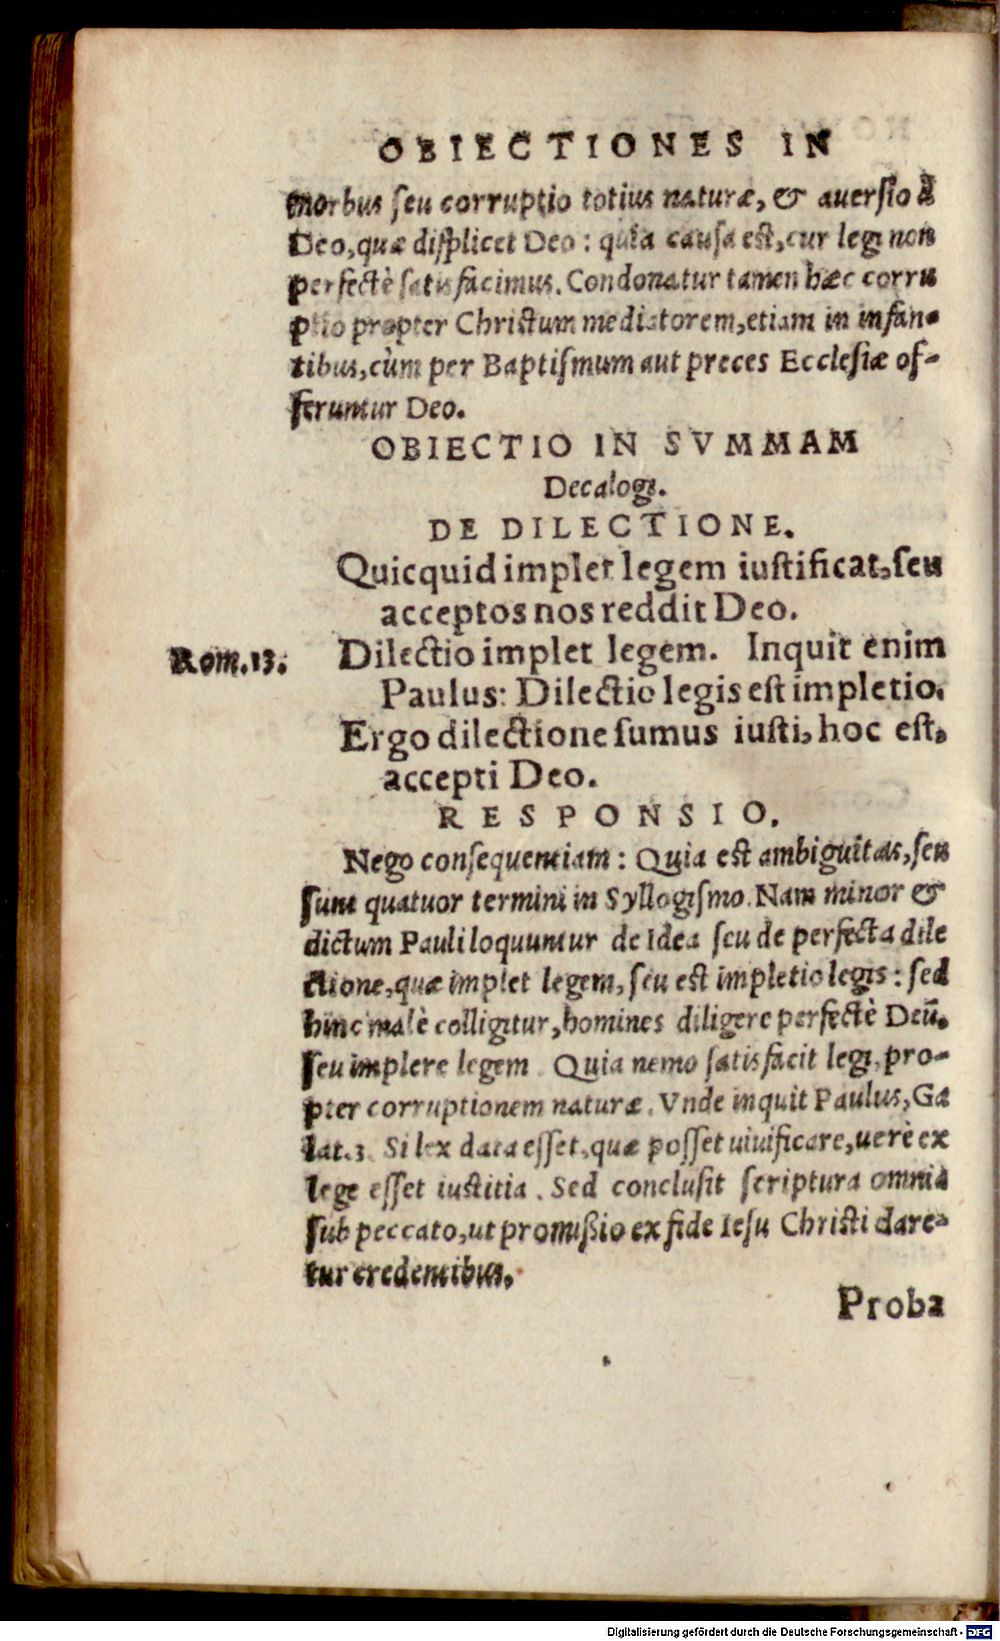 OBIECTIONES IN
morbus ſeu corruptio totius naturæ, & auerſio à
Deo, quæ diſplicet Deo: quia cauſa est, cur legi non
perfectè ſatisfacimus. Condonatur tamen hæc corru
ptio propter Christum mediatorem, etiam in infan-
tibus, cùm per Baptiſmum aut preces Eccleſiæ of-
feruntur Deo.
OBIECTIO IN SVMMAM
Decalogi.
DE DILECTIONE.
Quicquid implet legem iustificat, ſeu
acceptos nos reddit Deo.
Rom. 13. Dilectio implet legem. Inquit enim
Paulus: Dilectio legis est impletio.
Ergo dilectione ſumus iusti, hoc est,
accepti Deo.
RESPONSIO.
Nego conſequentiam: Quia est ambiguitas, ſeu
ſunt quatuor termini in Syllogiſmo. Nam minor &
dictum Pauli loquuntur de Idea ſeu de perfecta dile
ctione, quæ implet legem, ſeu est impletio legis: ſed
hinc malè colligitur, homines diligere perfectè Deũ.
ſeu implere legem. Quia nemo ſatisfacit legi, pro-
pter corruptionem naturæ. Vnde inquit Paulus, Ga
lat. 3. Si lex data eſſet, quæ poſſet uiuificare, uerè ex
lege eſſet iustitia. Sed concluſit ſcriptura omnia
ſub peccato, ut promißio ex fide Ieſu Christi dare-
tur credentibus.
Proba
Digitalisierung gefördert durch die Deutsche Forschungsgemeinschaft - DFG